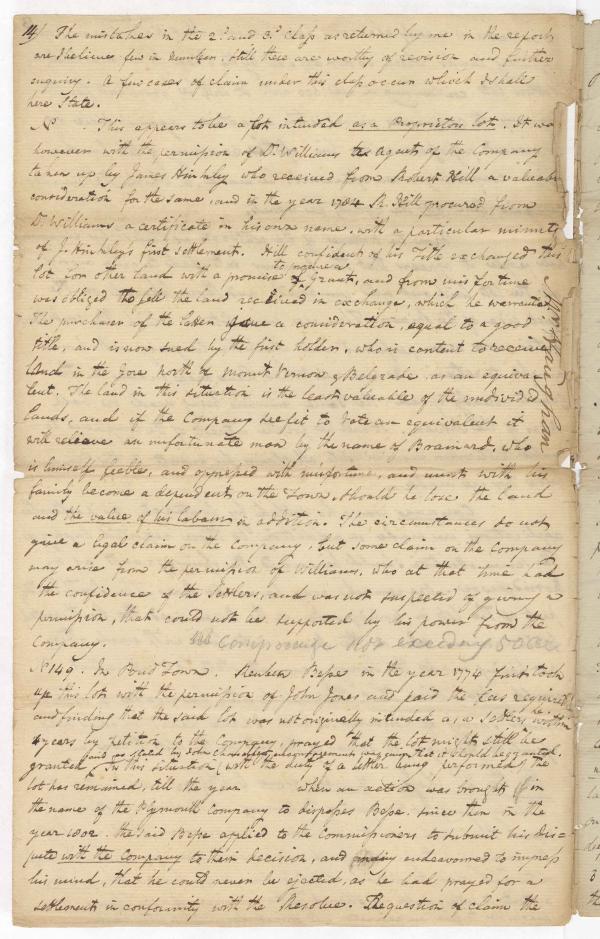 14/ The mistakes in the 2d. and 3d. Class as returned by me in the report
are I believe few in number. Still there are worthy of revision and further
enquiry. A few cases of claim under this class occur which I shall
here State.
No This appears to be a lot intended as a Proprietors lot. It was
however with the permission of Dr. Williams the Agent of the Company
taken up by James Hinkley who received from Robert Hill a valuable
consideration for the same, and in the year 1784 R. Hill procured from
Dr. Williams a certificate in his own name, with a particular minute
of J. Hinkley's first settlement. Hill confident of his Title exchanged this
lot for other land with a promise to procure a Grant, and from misfortune
was obliged to sell the land received in exchange, which he warranted
The purchaser of the latter gave a consideration, equal to a good
title, and is now sued by the first holder, who is content to receive
land in the gore north of Mount Vernon & Belgrade as an equiva
lent. The land in this situation is the least valuable of the undivided
lands, and if the Company see fit to vote an equivalent it
will relieve an unfortunate man by the name of Brainard, who
is himself feeble, and oppressed with misfortune, and must with his
family become a dependent on the Town, should he lose the land
and the value of his labour in addition. The circumstances do not
give a legal claim on the Company, but some claim on the Company
may arise from the permission of Williams, who at that time had
the confidence of the Settlers, and was not suspected of giving a
permission, that could not be supported by his power from the
Company. compromise not exceeding 50
No 149. In Pond Town. Reuben Besse in the year 1774 first took
up this lot with the permission of John Jones and paid the fees required
and finding that the said lot was not originally intended as a Settlers, he within
4 years by petition to the Company, prayed that the lot might still be
granted, and as stated by John Chandler, encouragement was given that it should be granted.
In this situation (with the duty of a settler being performed) the
lot has remained, till the year when an action was brought in
the name of the Plymouth Company to dispossess Besse. since then in the
year 1802. the said Besse applied to the Commissioners to submit his dis=
pute with the Company to their decision, and endeavoured to impress
his mind, that he could never be ejected, as he had prayed for a
settlement in conformity with the Resolve. The question of claim the
Mr. Vaughan